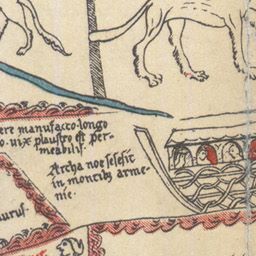 ere manufacto longo
o. uix plaustro est per-
meabilis.
Archa noe sesesit
in montibus arme-
nie.
aurus.